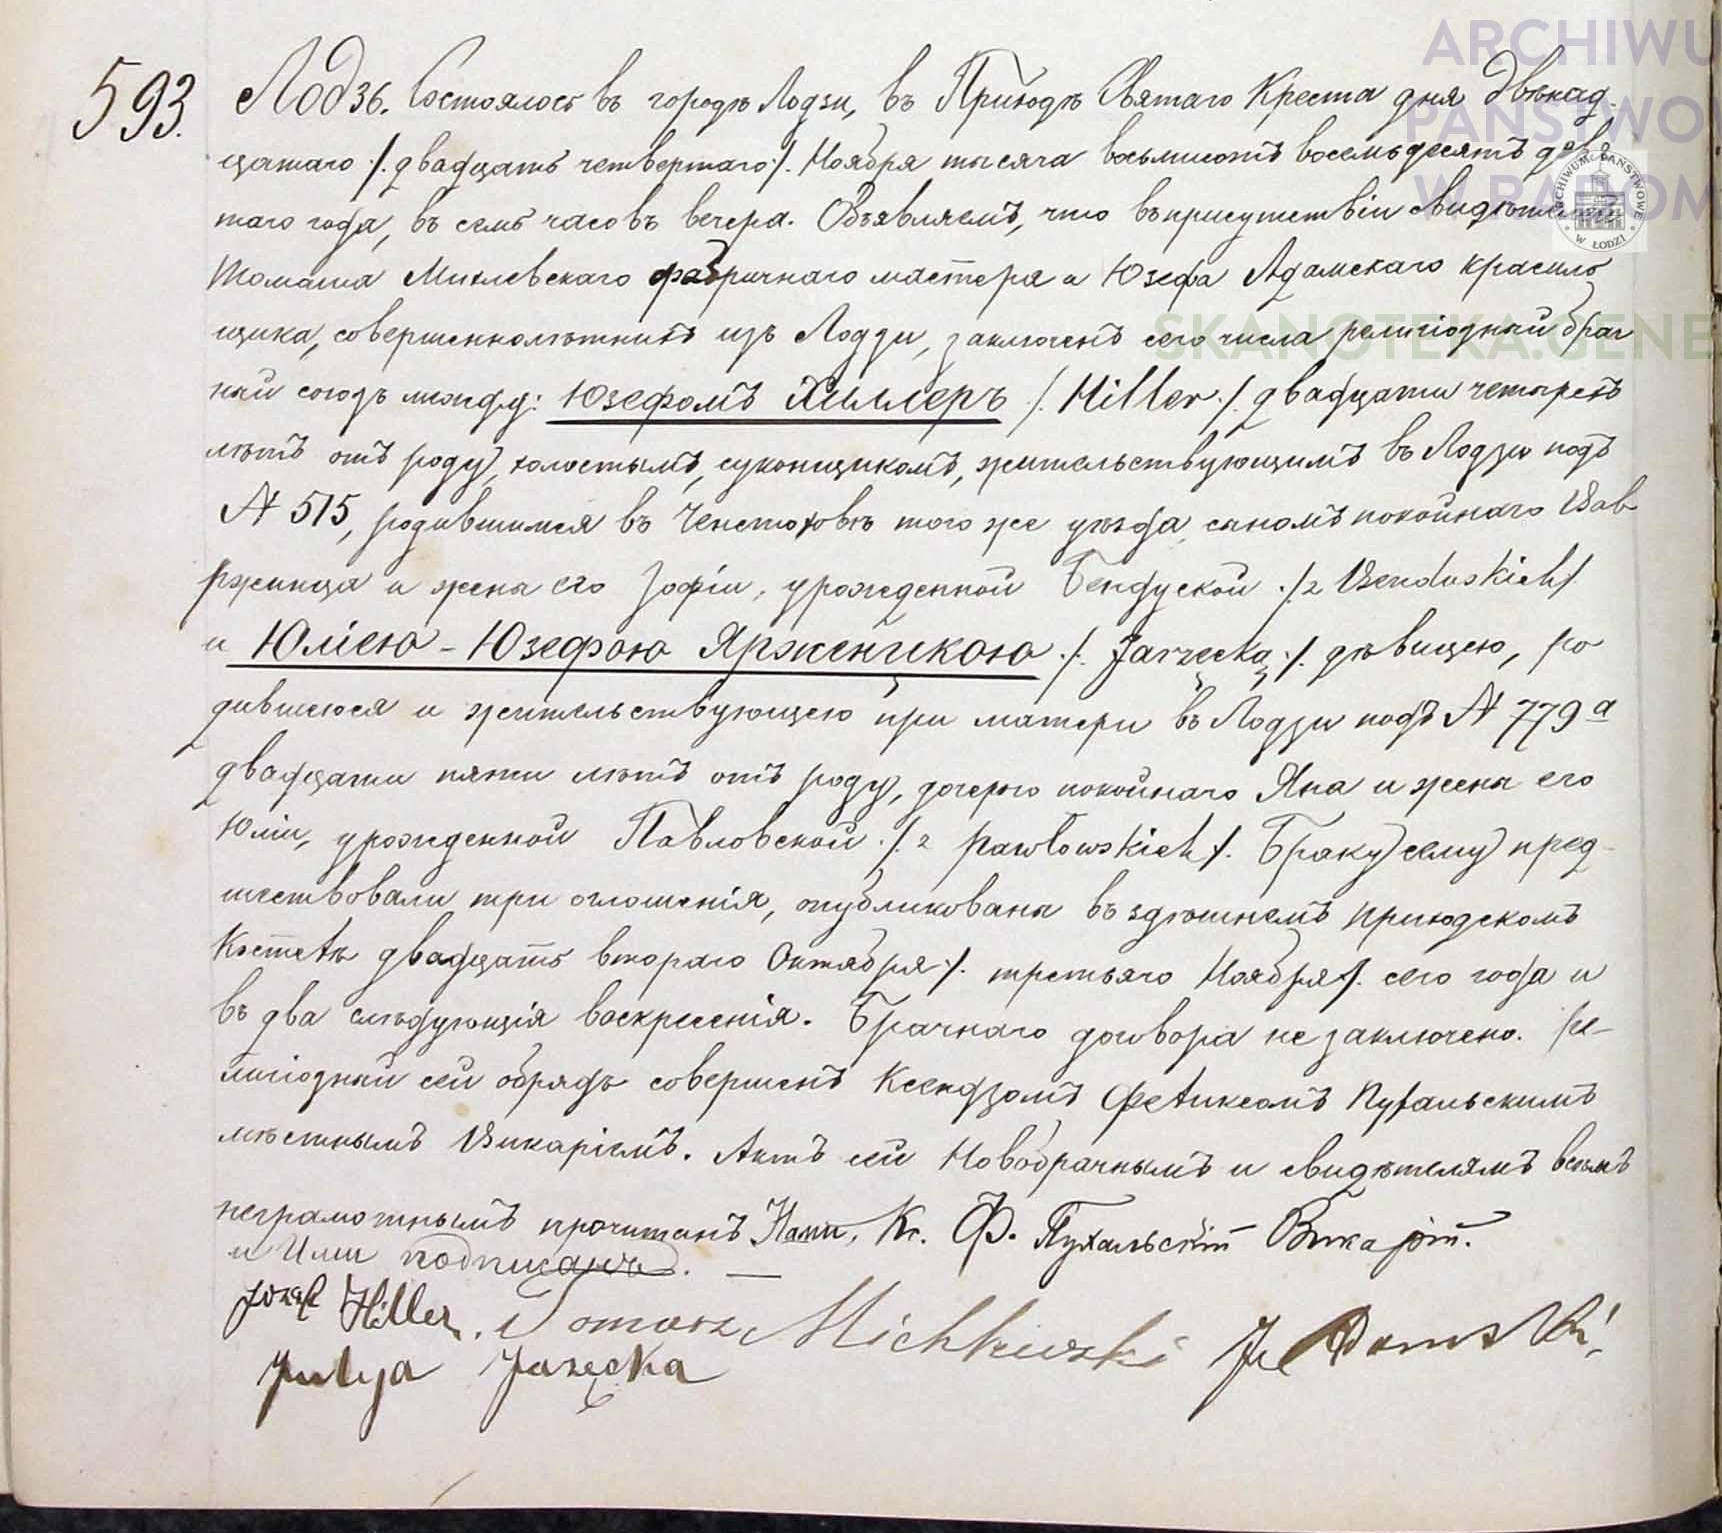 593.
Лодзь. Состоялось въ городѣ Лодзи, въ Приходѣ Святаго Креста дня двѣнад-
цатаго /. двадцать четвертаго ./. Ноября тысяча восьмисотъ восемьдесятъ девя
таго года, въ семь часовъ вечера. Объявляемъ, что въ присутствіи свидѣтелей
Томаша Михлевскаго фабричнаго мастера и Юзефа Адамскаго красиль
щика, совершеннолѣтнихъ изъ Лодзи, заключенъ сего числа религіозный брач
ный союзъ между: Юзефомъ Хиллеръ /. Hiller ./. двадцати четырехъ
лѣтъ отъ роду, холостымъ, суконщикомъ, жительствующимъ въ Лодзи подъ
№ 515, родившимся въ Ченстоховѣ того же уѣзда, сыномъ покойнаго Вав
ржинца и жены его Зофіи, урожденной Бендуской ./. z Benduskich /.
и Юліею - ЮзефоюЯрженцкою ./. Jarzęcką ./. дѣвицею, ро
дившеюся и жительствующею при матери въ Лодзи подъ № 779 а
двадцати пяти лѣтъ отъ роду, дочерью покойнаго Яна и жены его
Юліи, урожденной Павловской ./. z Pawłowskich ./. Браку сему пред-
шествовали три оглошенія, опубликованы въ здѣшнемъ приходскомъ
Костелѣ двадцать втораго Октября ./. третьяго Ноября /. сего года и
въ два слѣдующія воскресенія. Брачнаго договора не заключено. Ре-
лигіозный сей обрядъ совершенъ Ксендзомъ Феликсомъ Пухальскимъ
мѣстнымъ Викаріемъ. Актъ сей Новобрачнымъ и свидѣтелямъ всѣмъ
неграмотнымъ прочитанъ Нами, Кс. Ф. Пухальскій Викарій.
и Ими подписанъ. —
Józef Hiller. Tomasz Michlewski J. Adamski
Julja Jarzęcka
ARCHIWU
PAŃSTWO
W RADOM
ARCHIWUM PAŃSTWOWE W ŁODZI
SKANOTEKA.GENE